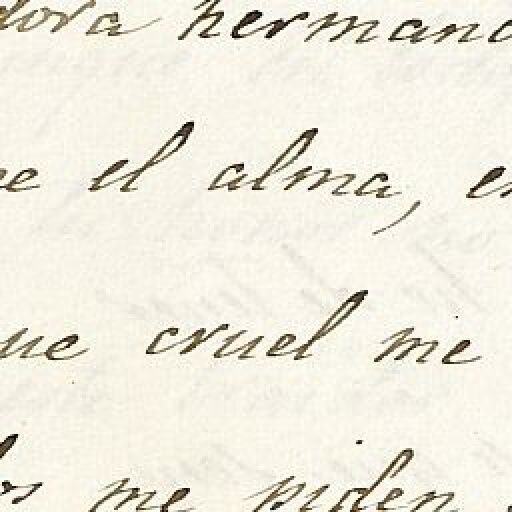 dora hermana
el alma, en
ue cruel me
los me piden